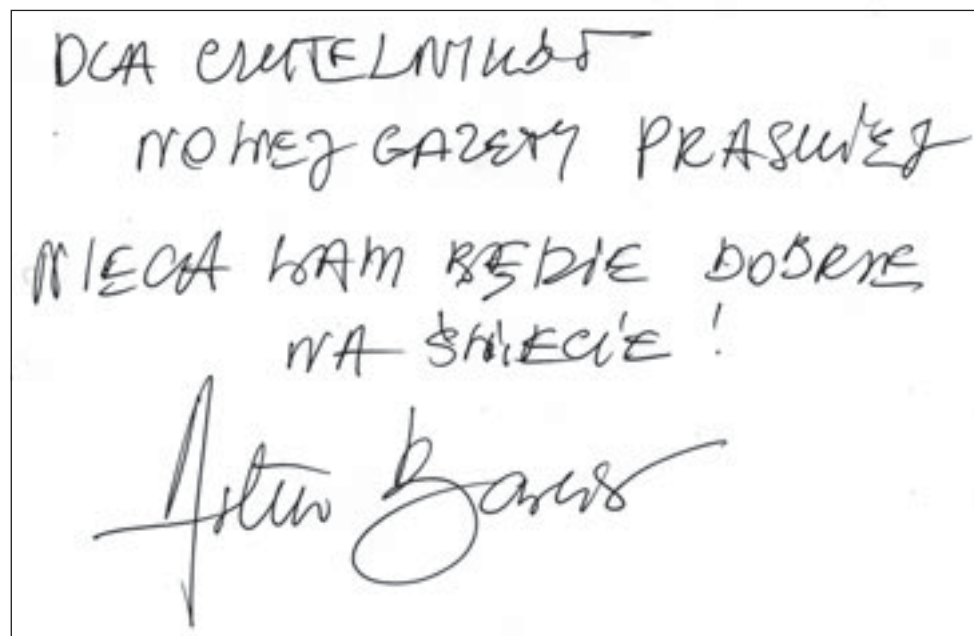 DLA CZYTELNIKÓW
NOWEJ GAZETY PRASKIEJ
NIECH WAM BĘDZIE DOBRZE
NA ŚWIECIE !
Artur Barciś